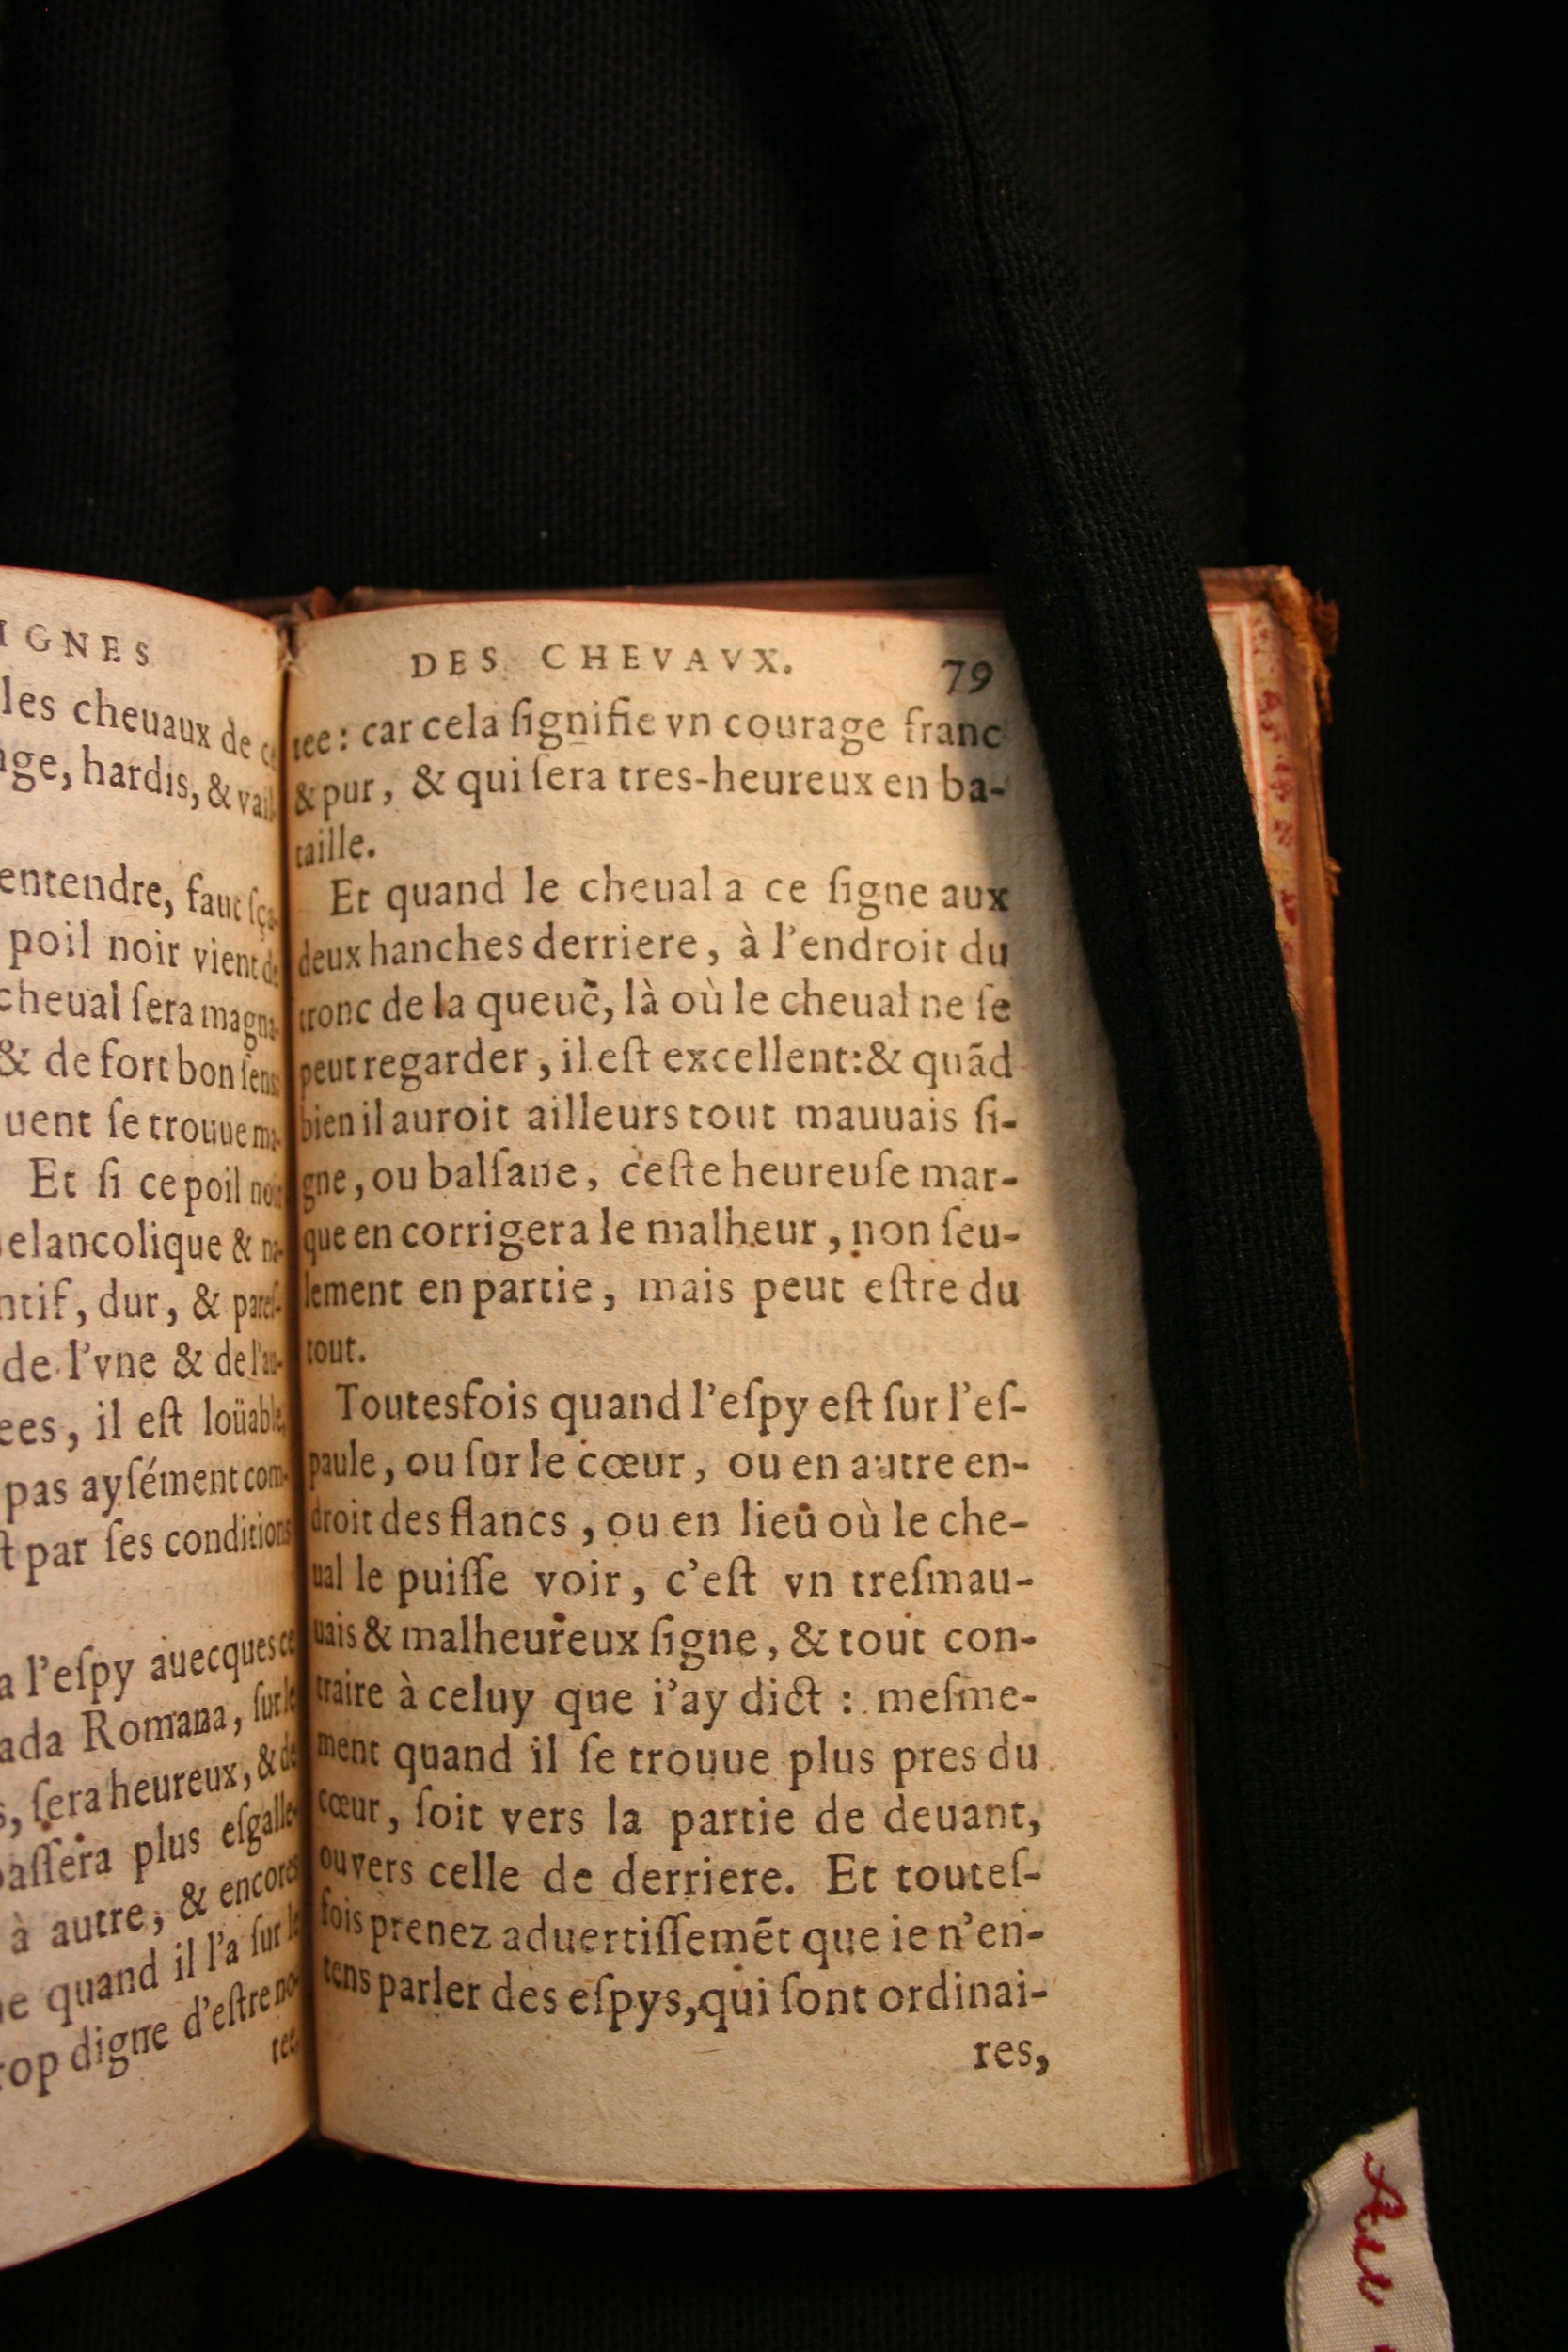 IGNES
les cheuaux de
age, hardis, & vail
entendre, faut sça-
poil noir vient de
cheual ſera magna-
& de fort bon ſens
uent ſe trouue ma-
Et ſi ce poil noir
elancolique & na-
ntif, dur, & pareſ-
de l'vne & de l'au-
ees, il eſt loüable,
pas ayſément com-
par ſes conditions
a l'eſpy auecques ce
ada Romana, ſur le
ſera heureux, & de
paſſera plus eſgalle-
à autre, & encores
quand il l'a ſur le
digne d'eſtre no-
tee:
DES CHEVAVX. 79
tee: car cela ſignifie vn courage franc
& pur, & qui ſera tres-heureux en ba-
taille.
Et quand le cheual a ce ſigne aux
deux hanches derriere, à l'endroit du
tronc de la queuë, là où le cheual ne ſe
peut regarder, il eſt excellent: & quãd
bien il auroit ailleurs tout mauuais ſi-
gne, ou balſane, ceſte heureuſe mar-
que en corrigera le malheur, non ſeu-
lement en partie, mais peut eſtre du
tout.
Toutesfois quand l'eſpy eſt ſur l'eſ-
paule, ou ſur le cœur, ou en autre en-
droit des flancs, ou en lieu où le che-
ual le puiſſe voir, c'eſt vn treſmau-
uais & malheureux ſigne, & tout con-
traire à celuy que i'ay dict: meſme-
ment quand il ſe trouue plus pres du
cœur, ſoit vers la partie de deuant,
ou vers celle de derriere. Et touteſ-
fois prenez aduertiſſemẽt que ie n'en-
tens parler des eſpys, qui ſont ordinai-
res,